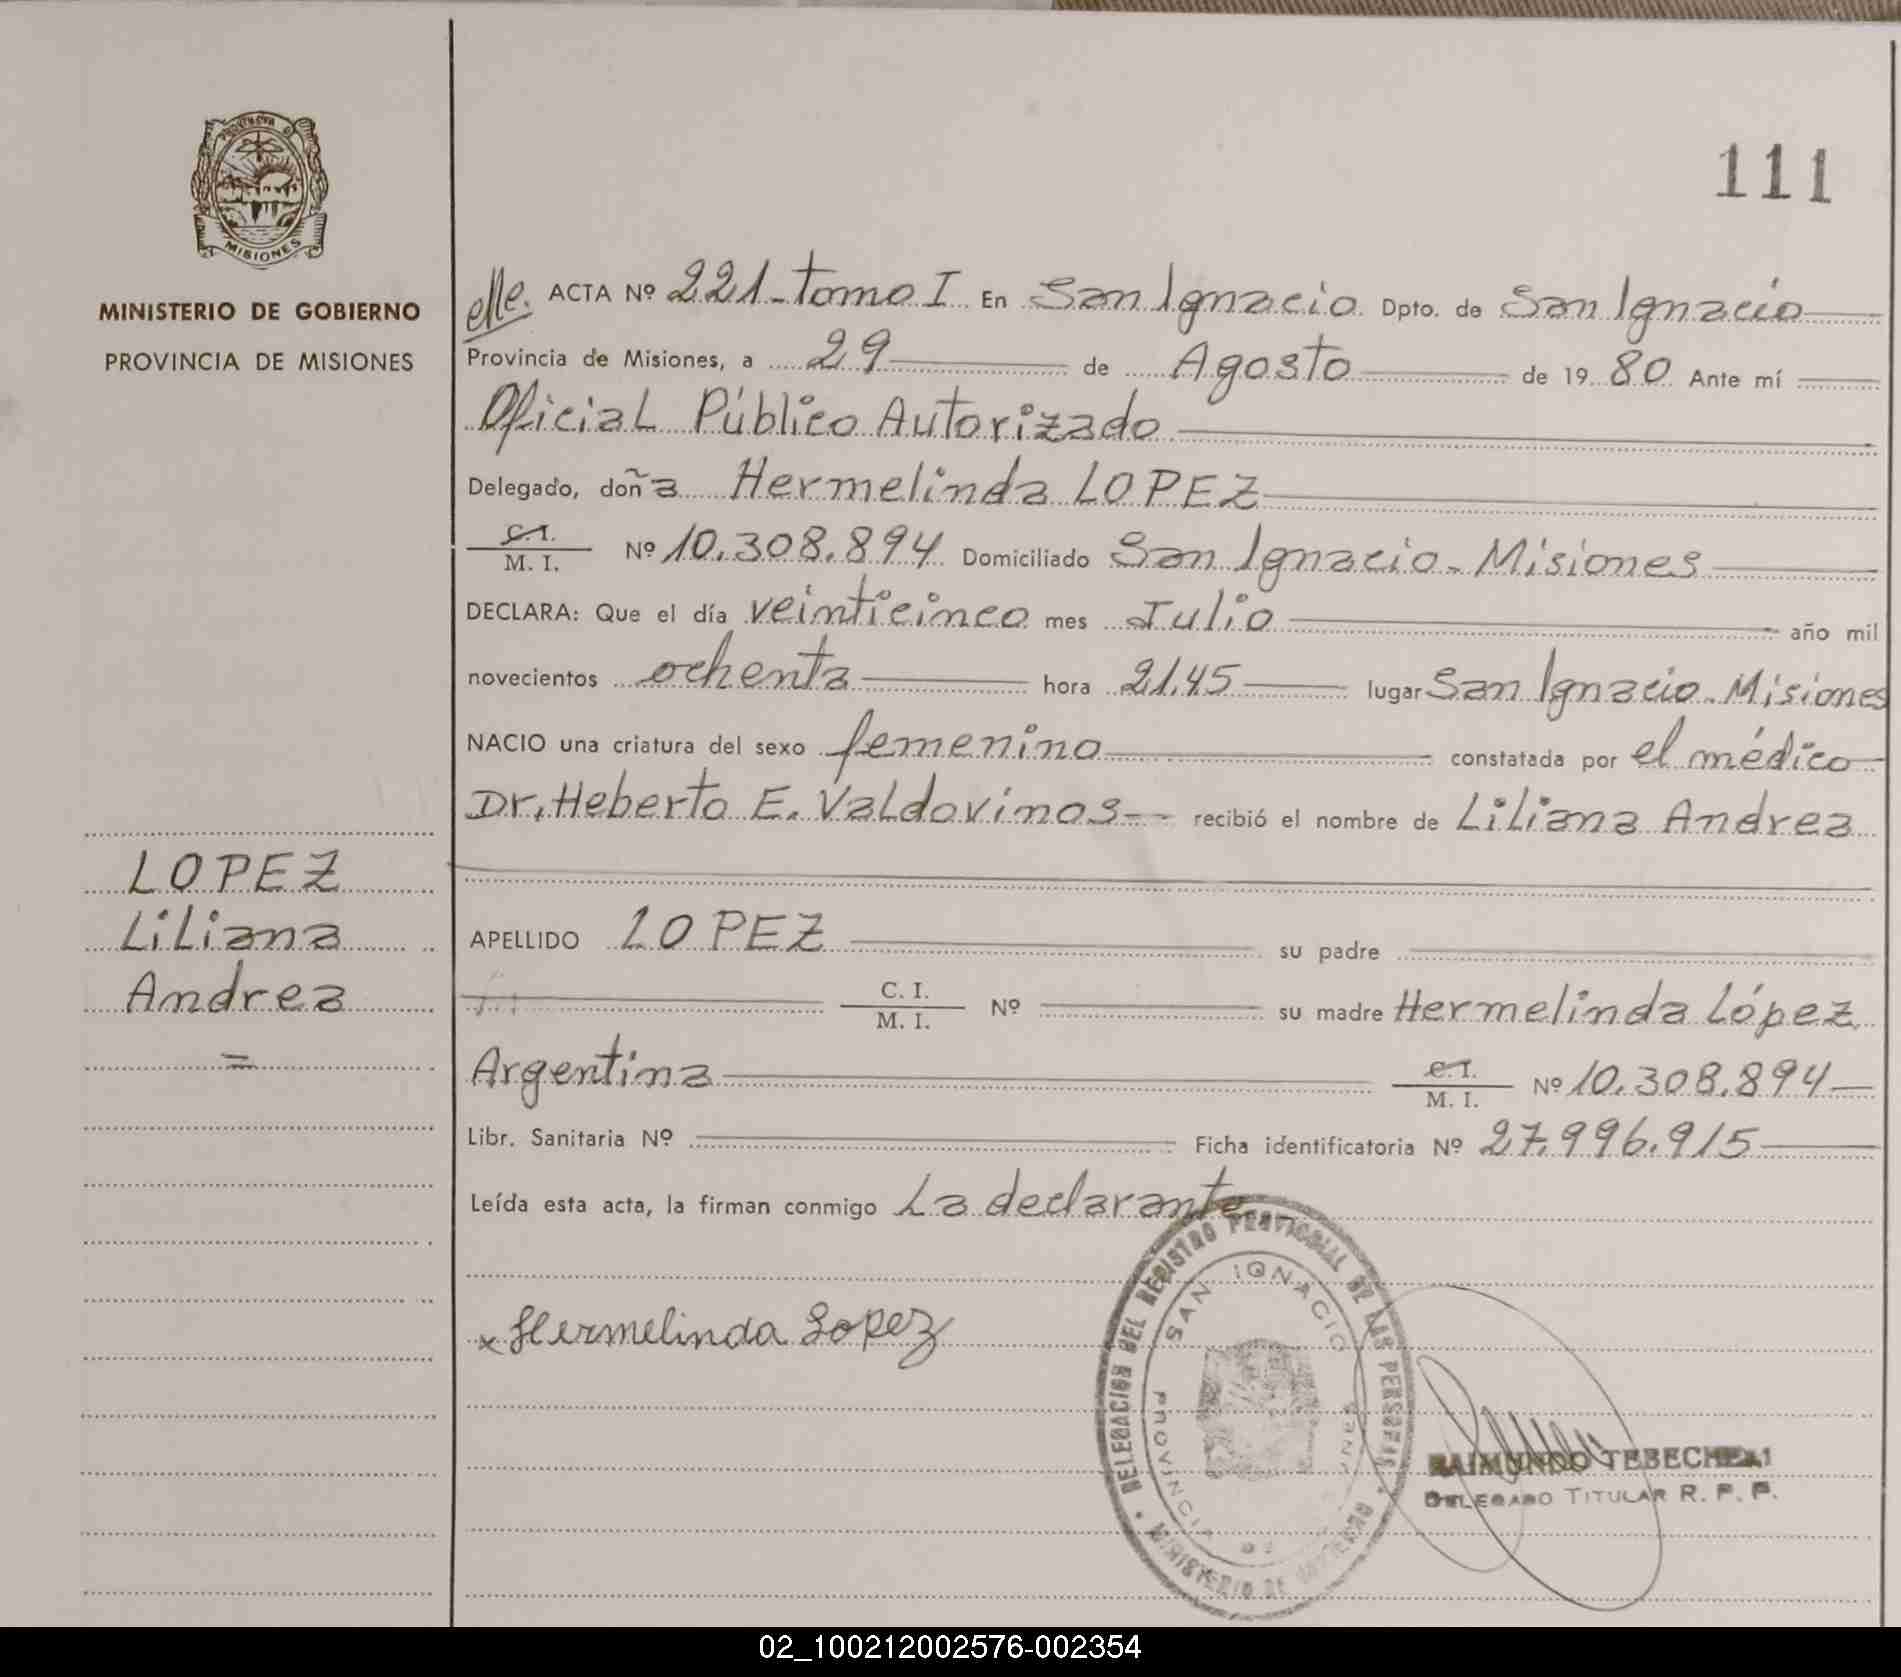 PROVINCIA DE
MISIONES
MINISTERIO DE GOBIERNO
PROVINCIA DE MISIONES
LOPEZ
Liliana
Andrea
=
111
ACTA Nº 221-tomo I En San Ignacio Dpto. de San Ignacio
Provincia de Misiones, a 29 de Agosto de 1980 Ante mí
Oficial Público Autorizado
Delegado, doña Hermelinda LOPEZ
C.I.
M. I. Nº 10.308.894 Domiciliado San Ignacio - Misiones
DECLARA: Que el día veinticinco mes Julio año mil
novecientos ochenta hora 21.45 lugar San Ignacio - Misiones
NACIO una criatura del sexo femenino constatada por el médico
Dr. Heberto E. Valdovinos -- recibió el nombre de Liliana Andrea
APELLIDO LOPEZ su padre
C. I.
M. I. Nº su madre Hermelinda López
Argentina C.I.
M. I. Nº 10.308.894
Libr. Sanitaria Nº Ficha identificatoria Nº 27.996.915
Leída esta acta, la firman conmigo La declarante
x Hermelinda Lopez
DELEGACION DEL REGISTRO PROVINCIAL DE LAS PERSONAS
MINISTERIO DE GOBIERNO
SAN IGNACIO
PROVINCIA DE
RAIMUNDO
DELEGADO TITULAR R. P. P.
02_100212002576-002354